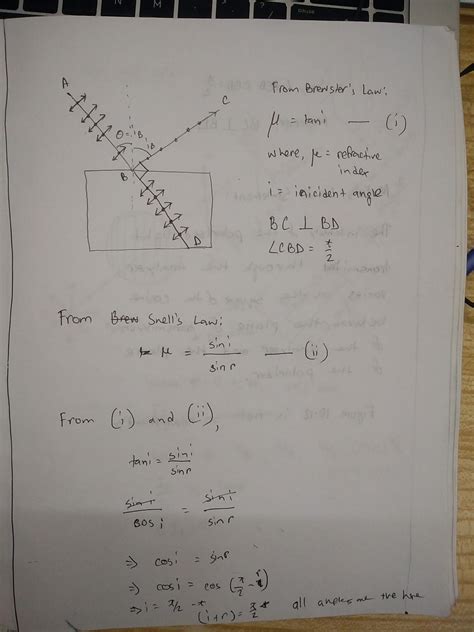 A
C
θ = i_B
i_B
B
D
From Brewster's Law:
μ = tan i — (i)
where, μ = refractive
index
i = inicident angle
BC ⊥ BD
∠CBD = π/2
From Snell's Law:
μ = sin i / sin r — (ii)
From (i) and (ii),
tan i = sin i / sin r
sin i / cos i = sin i / sin r
⇒ cos i = sin r
⇒ cos i = cos (π/2 - r)
⇒ i = π/2 - r
(i+r) = π/2
all angles are